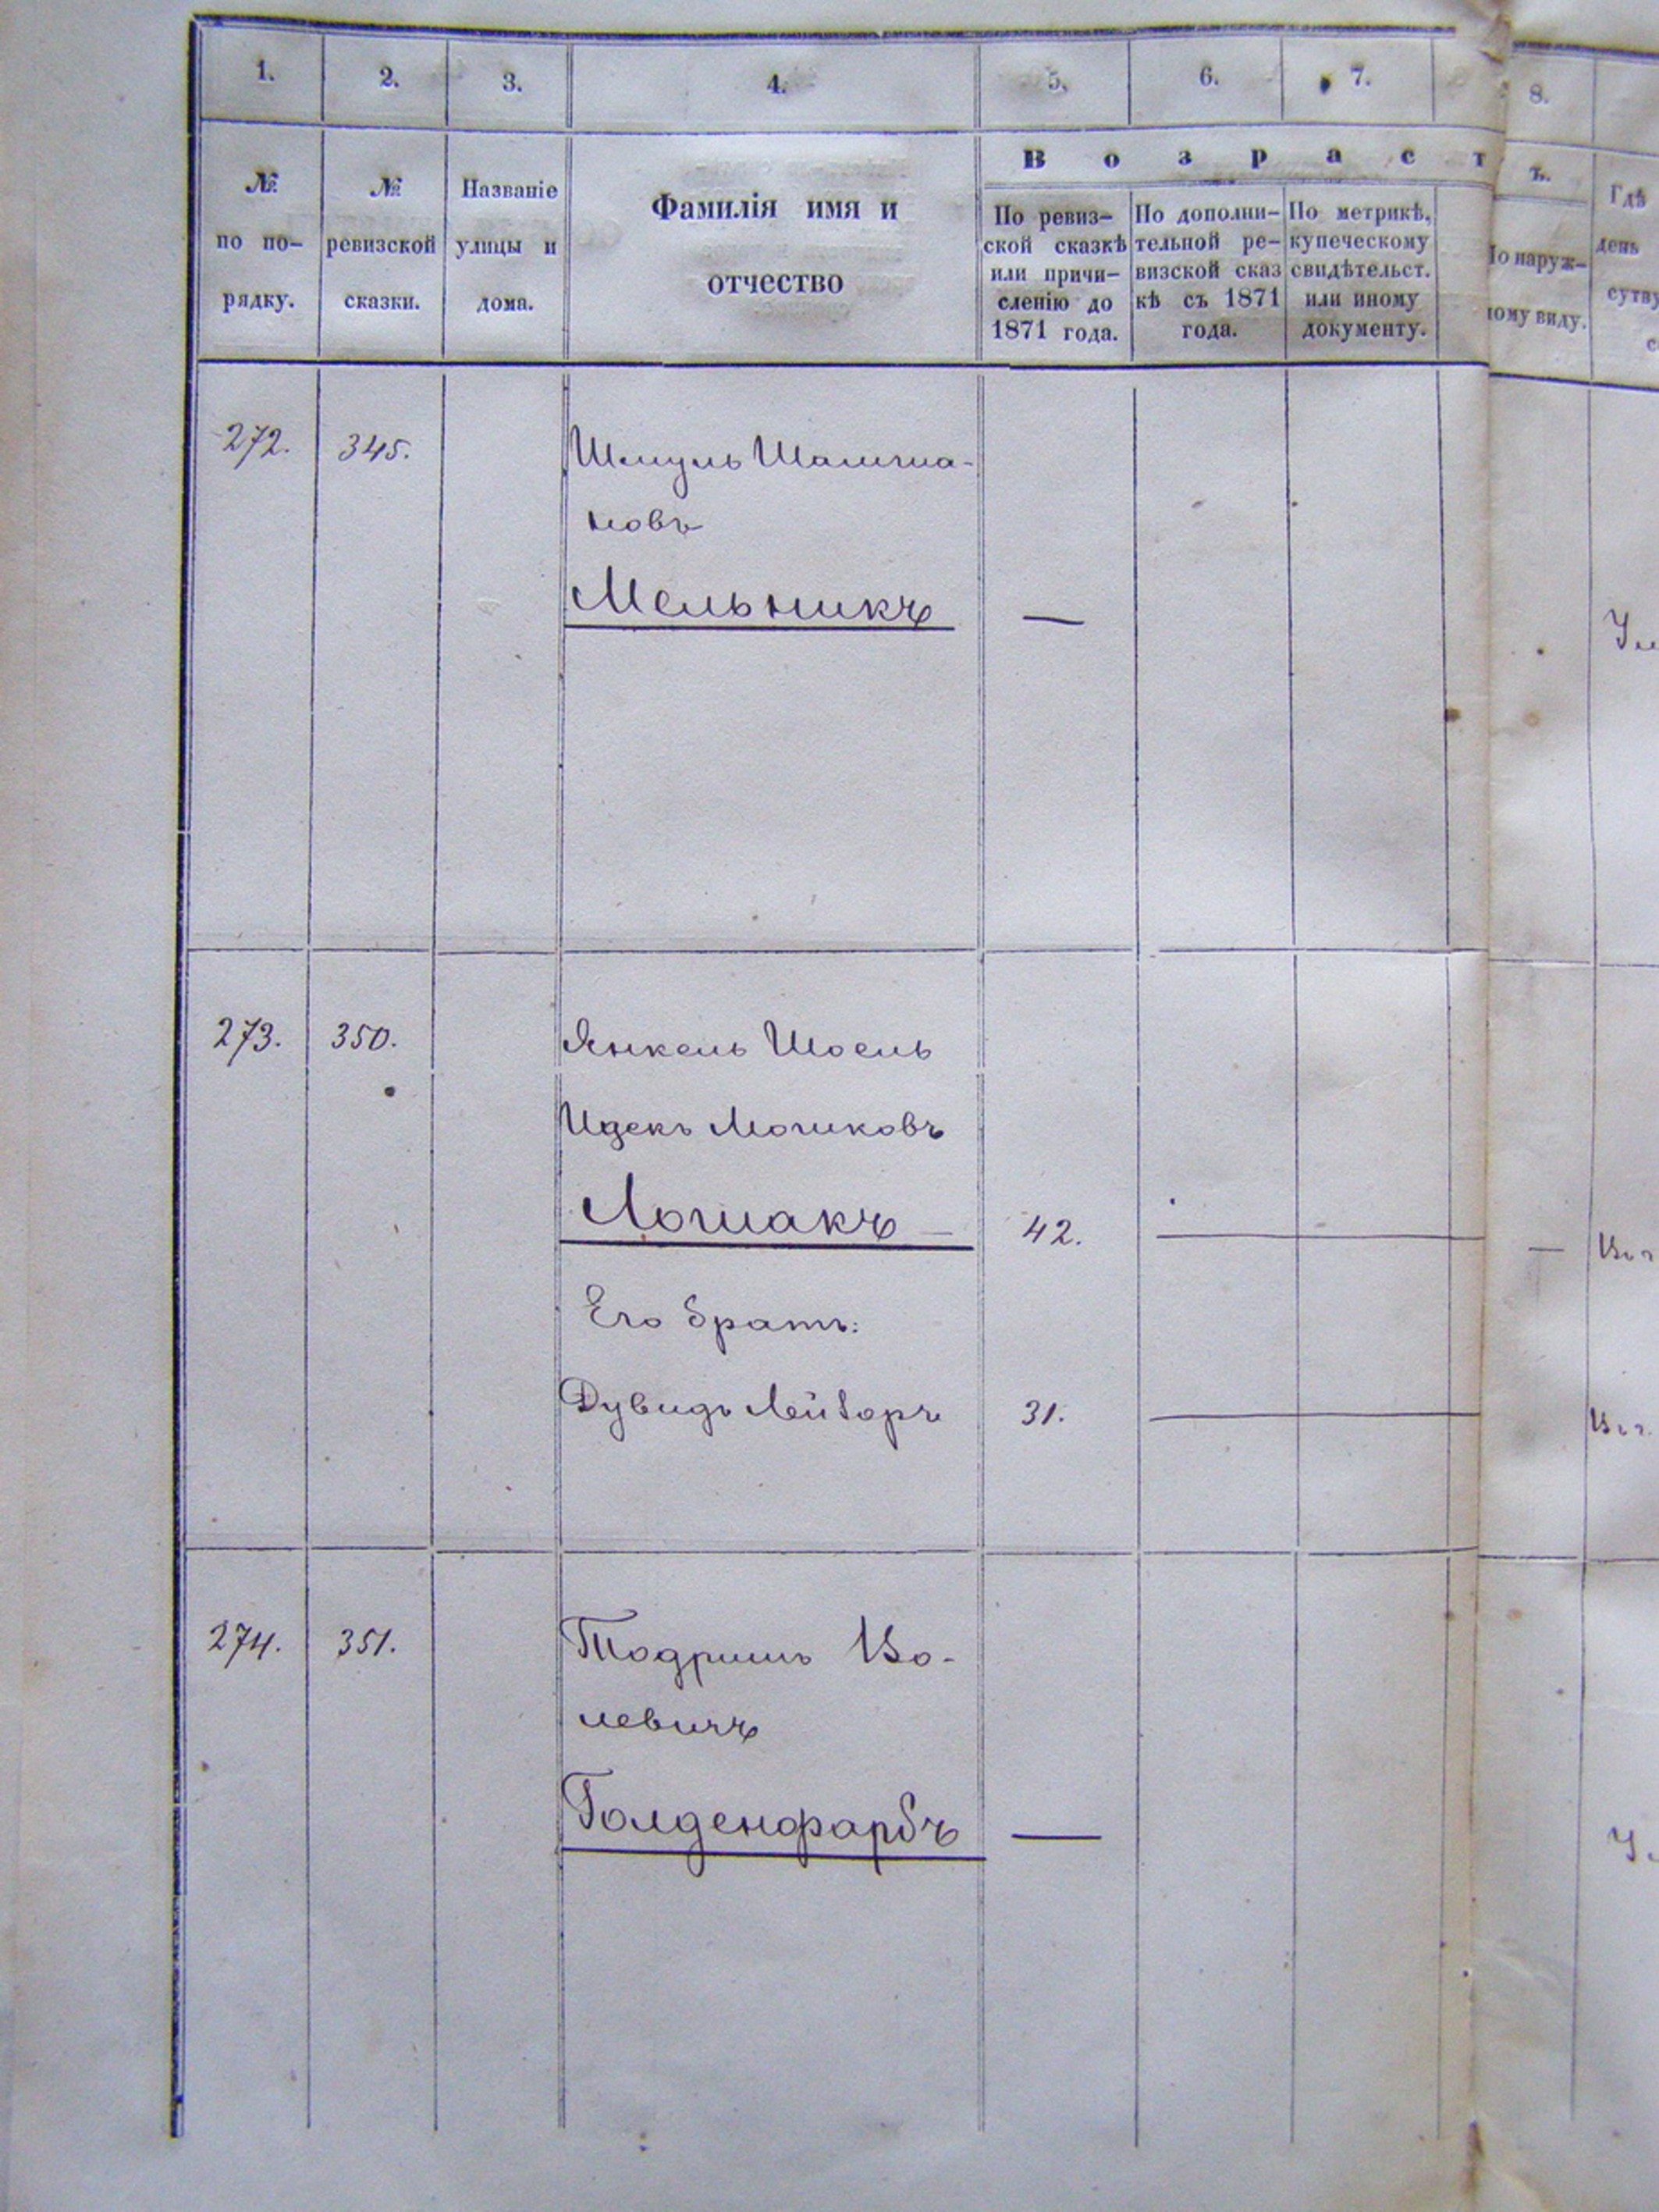 1. 2. 3. 4. 5. 6. 7. 8.
№ по по-
рядку.
№
ревизской
сказки.
Названіе
улицы и
дома.
Фамилія имя и
отчество
Возраст
ъ.
По ревиз-
ской сказкѣ
или причи-
сленію до
1871 года.
По дополни-
тельной ре-
визской сказ
кѣ съ 1871
года.
По метрикѣ,
купеческому
свидѣтельст.
или иному
документу.
По наруж-
ному виду.
Гдѣ
день
272. 345. Шмуль
новъ
Мельникъ —
273. 350. Янкель Шоель
Ицекъ Мошковъ
Лошакъ — 42. —
Его братъ:
Дувидъ Лейзоръ 31. —
274. 351. Тодришь Во-
левичъ
Голденфарбъ —